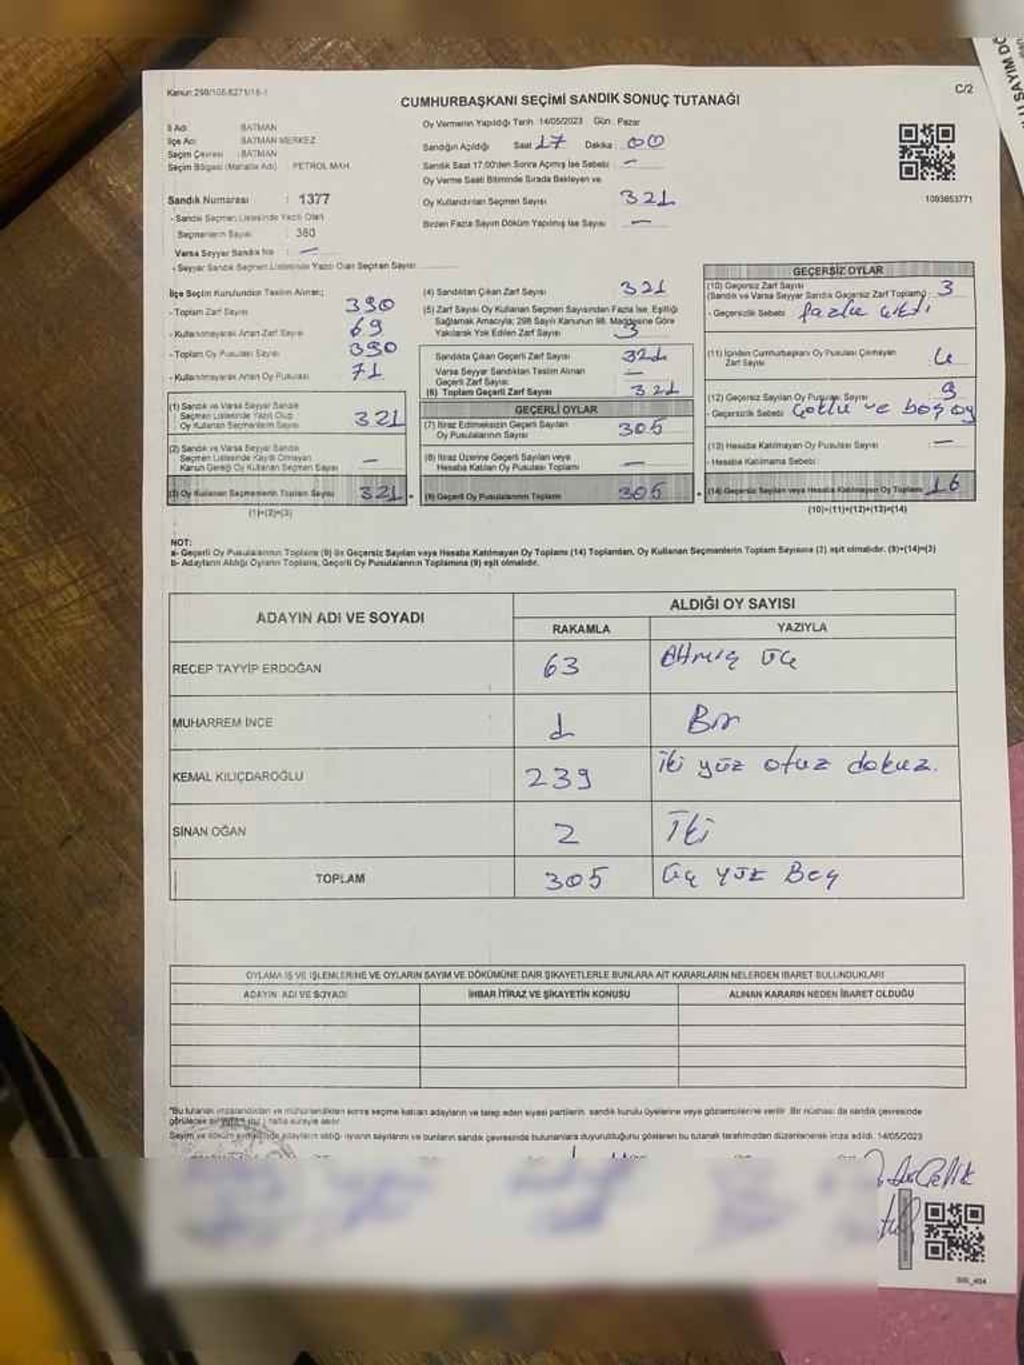 Kanun:298/105-6271/18-1
C/2
CUMHURBAŞKANI SEÇİMİ SANDIK SONUÇ TUTANAĞI
İl Adı : BATMAN
İlçe Adı : BATMAN MERKEZ
Seçim Çevresi : BATMAN
Seçim Bölgesi (Mahalle Adı) : PETROL MAH.
Sandık Numarası : 1377
- Sandık Seçmen Listesinde Yazılı Olan
Seçmenlerin Sayısı : 380
Varsa Seyyar Sandık No : —
- Seyyar Sandık Seçmen Listesinde Yazılı Olan Seçmen Sayısı
Oy Vermenin Yapıldığı Tarih 14/05/2023 Gün : Pazar
Sandığın Açıldığı Saat 17 Dakika : 00
Sandık Saat 17:00'den Sonra Açılmış İse Sebebi : —
Oy Verme Saati Bitiminde Sırada Bekleyen ve
Oy Kullandırılan Seçmen Sayısı 321
Birden Fazla Sayım Döküm Yapılmış İse Sayısı —
1093653771
İlçe Seçim Kurulundan Teslim Alınan;
- Toplam Zarf Sayısı 390
- Kullanılmayarak Artan Zarf Sayısı 69
- Toplam Oy Pusulası Sayısı 390
- Kullanılmayarak Artan Oy Pusulası 71
(1) Sandık ve Varsa Seyyar Sandık
Seçmen Listesinde Yazılı Olup
Oy Kullanan Seçmenlerin Sayısı 321
(2) Sandık ve Varsa Seyyar Sandık
Seçmen Listesinde Kayıtlı Olmayan
Kanun Gereği Oy Kullanan Seçmen Sayısı —
(3) Oy Kullanan Seçmenlerin Toplam Sayısı 321
(1)+(2)=(3)
(4) Sandıktan Çıkan Zarf Sayısı 321
(5) Zarf Sayısı Oy Kullanan Seçmen Sayısından Fazla İse, Eşitliği
Sağlamak Amacıyla; 298 Sayılı Kanunun 98. Maddesine Göre
Yakılarak Yok Edilen Zarf Sayısı 3
Sandıkta Çıkan Geçerli Zarf Sayısı 321
Varsa Seyyar Sandıktan Teslim Alınan
Geçerli Zarf Sayısı —
(6) Toplam Geçerli Zarf Sayısı 321
GEÇERLİ OYLAR
(7) İtiraz Edilmeksizin Geçerli Sayılan
Oy Pusulalarının Sayısı 305
(8) İtiraz Üzerine Geçerli Sayılan veya
Hesaba Katılan Oy Pusulası Toplamı —
(9) Geçerli Oy Pusulalarının Toplamı 305
GEÇERSİZ OYLAR
(10) Geçersiz Zarf Sayısı
(Sandık ve Varsa Seyyar Sandık Geçersiz Zarf Toplamı) 3
- Geçersizlik Sebebi : fazla çıktı
(11) İçinden Cumhurbaşkanı Oy Pusulası Çıkmayan
Zarf Sayısı 4
(12) Geçersiz Sayılan Oy Pusulası Sayısı 9
- Geçersizlik Sebebi : Çoklu ve boş oy
(13) Hesaba Katılmayan Oy Pusulası Sayısı —
- Hesaba Katılmama Sebebi :
(14) Geçersiz Sayılan veya Hesaba Katılmayan Oy Toplamı 16
(10)+(11)+(12)+(13)=(14)
NOT:
a- Geçerli Oy Pusulalarının Toplamı (9) ile Geçersiz Sayılan veya Hesaba Katılmayan Oy Toplamı (14) Toplamları, Oy Kullanan Seçmenlerin Toplam Sayısına (3) eşit olmalıdır. (9)+(14)=(3)
b- Adayların Aldığı Oyların Toplamı, Geçerli Oy Pusulalarının Toplamına (9) eşit olmalıdır.
ADAYIN ADI VE SOYADI
ALDIĞI OY SAYISI
RAKAMLA YAZIYLA
RECEP TAYYİP ERDOĞAN 63 Altmış üç
MUHARREM İNCE 1 Bir
KEMAL KILIÇDAROĞLU 239 iki yüz otuz dokuz.
SİNAN OĞAN 2 İki
TOPLAM 305 Üç yüz Beş
OYLAMA İŞ VE İŞLEMLERİNE VE OYLARIN SAYIM VE DÖKÜMÜNE DAİR ŞİKAYETLERLE BUNLARA AİT KARARLARIN NELERDEN İBARET BULUNDUKLARI
ADAYIN ADI VE SOYADI İHBAR İTİRAZ VE ŞİKAYETİN KONUSU ALINAN KARARIN NEDEN İBARET OLDUĞU
*Bu tutanak imzalandıktan ve mühürlendikten sonra seçime katılan adayların ve talep eden siyasi partilerin, sandık kurulu üyelerine veya gözlemcilerine verilir. Bir nüshası da sandık çevresinde
görülecek bir yere bir hafta süreyle asılır.
Sayım ve döküm sonucunda adayların aldığı oyların sayılarını ve bunların sandık çevresinde bulunanlara duyurulduğunu gösteren bu tutanak tarafımızdan düzenlenerek imza edildi. 14/05/2023
Çelik